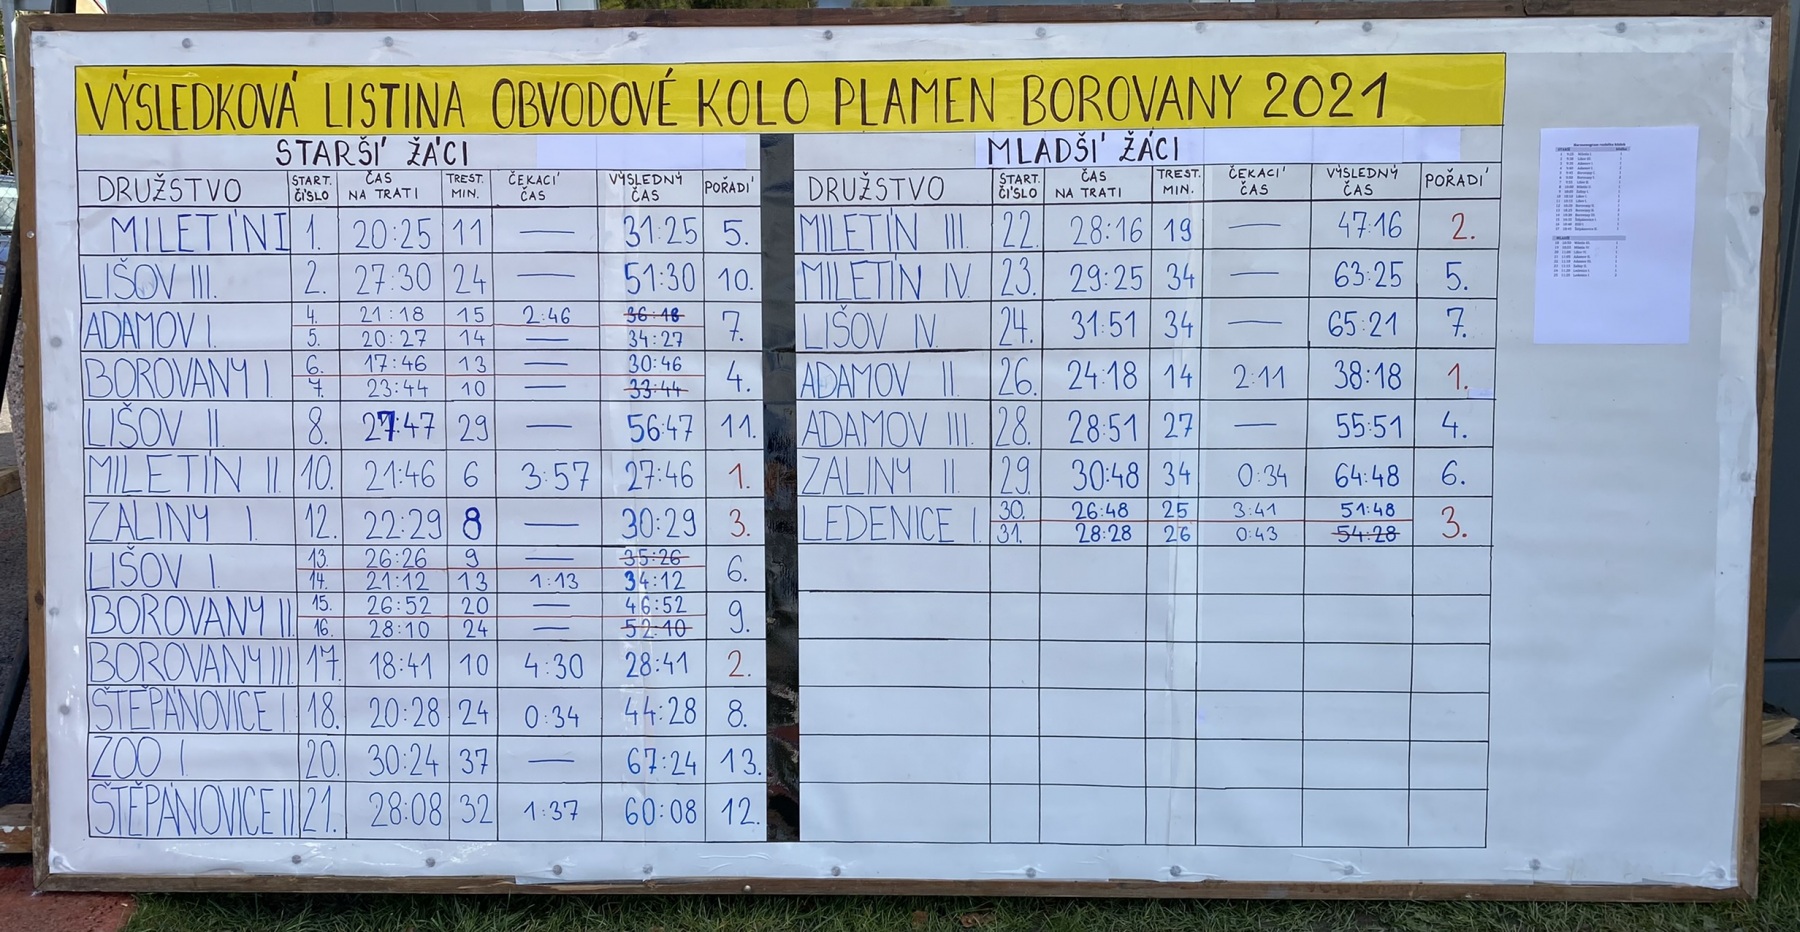 VÝSLEDKOVÁ LISTINA OBVODOVÉ KOLO PLAMEN BOROVANY 2021
STARŠÍ ŽÁCI
DRUŽSTVO START. ČÍSLO ČAS NA TRATI TREST. MIN. ČEKACÍ ČAS VÝSLEDNÝ ČAS POŘADÍ
MILETÍN I 1. 20:25 11 — 31:25 5.
LIŠOV III. 2. 27:30 24 — 51:30 10.
ADAMOV I. 4. 21:18 15 2:46 36:18 7.
5. 20:27 14 — 34:27
BOROVANY I. 6. 17:46 13 — 30:46 4.
7. 23:44 10 — 33:44
LIŠOV II. 8. 27:47 29 — 56:47 11.
MILETÍN II. 10. 21:46 6 3:57 27:46 1.
ZALINY I. 12. 22:29 8 — 30:29 3.
LIŠOV I. 13. 26:26 9 — 35:26 6.
14. 21:12 13 1:13 34:12
BOROVANY II. 15. 26:52 20 — 46:52 9.
16. 28:10 24 — 52:10
BOROVANY III. 17. 18:41 10 4:30 28:41 2.
ŠTĚPÁNOVICE I. 18. 20:28 24 0:34 44:28 8.
ZOO I. 20. 30:24 37 — 67:24 13.
ŠTĚPÁNOVICE II. 21. 28:08 32 1:37 60:08 12.
MLADŠÍ ŽÁCI
DRUŽSTVO START. ČÍSLO ČAS NA TRATI TREST. MIN. ČEKACÍ ČAS VÝSLEDNÝ ČAS POŘADÍ
MILETÍN III. 22. 28:16 19 — 47:16 2.
MILETÍN IV. 23. 29:25 34 — 63:25 5.
LIŠOV IV. 24. 31:51 34 — 65:21 7.
ADAMOV II. 26. 24:18 14 2:11 38:18 1.
ADAMOV III. 28. 28:51 27 — 55:51 4.
ZALINY II. 29. 30:48 34 0:34 64:48 6.
LEDENICE I. 30. 26:48 25 3:41 51:48 3.
31. 28:28 26 0:43 54:28